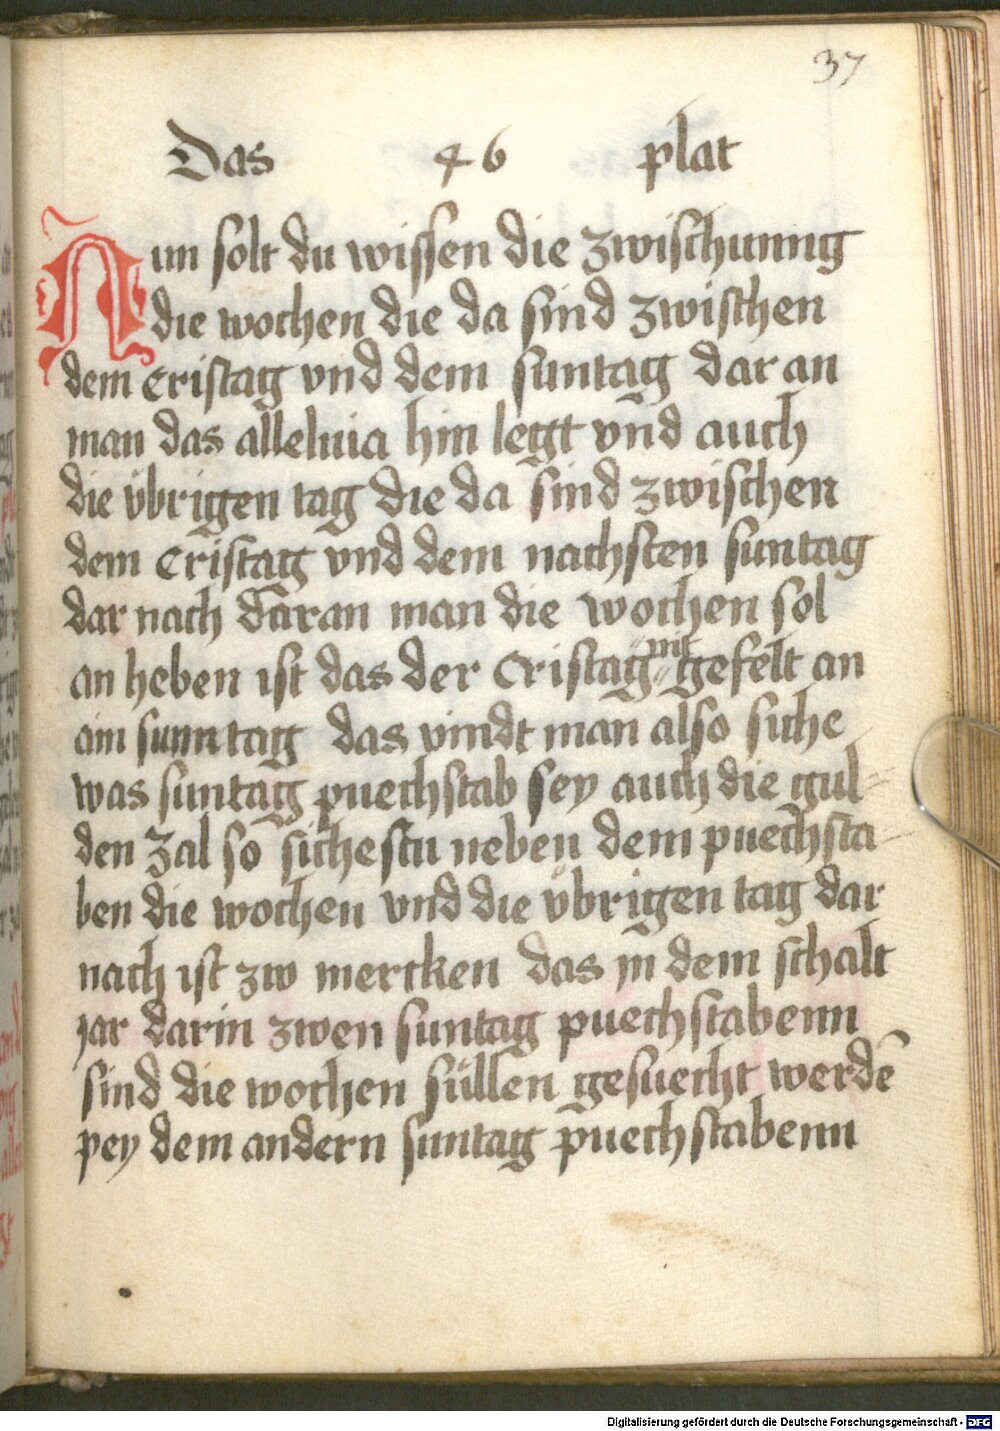 37
Das 46 plat
Nun solt du wissen die zwischunng
die wochen die da sind zwischen
dem Cristag vnd dem suntag dar an
man das alleluia hin legt vnd auch
die übrigen tag die da sind zwischen
dem Cristag vnd dem nachsten suntag
dar nach daran man die wochen sol
an heben ist das der Cristag nit gefelt an
ain sunntag das vindt man also siche
was suntag puechstab sey auch die gul=
den zal so sichestu neben dem puechsta=
ben die wochen vnd die übrigen tag dar
nach ist zw mercken das jn dem schalt
jar darin zwen suntag puechstabenn
sind die wochen süllen gesuecht werdē
pey dem andern suntag puechstabenn
Digitalisierung gefördert durch die Deutsche Forschungsgemeinschaft - DFG